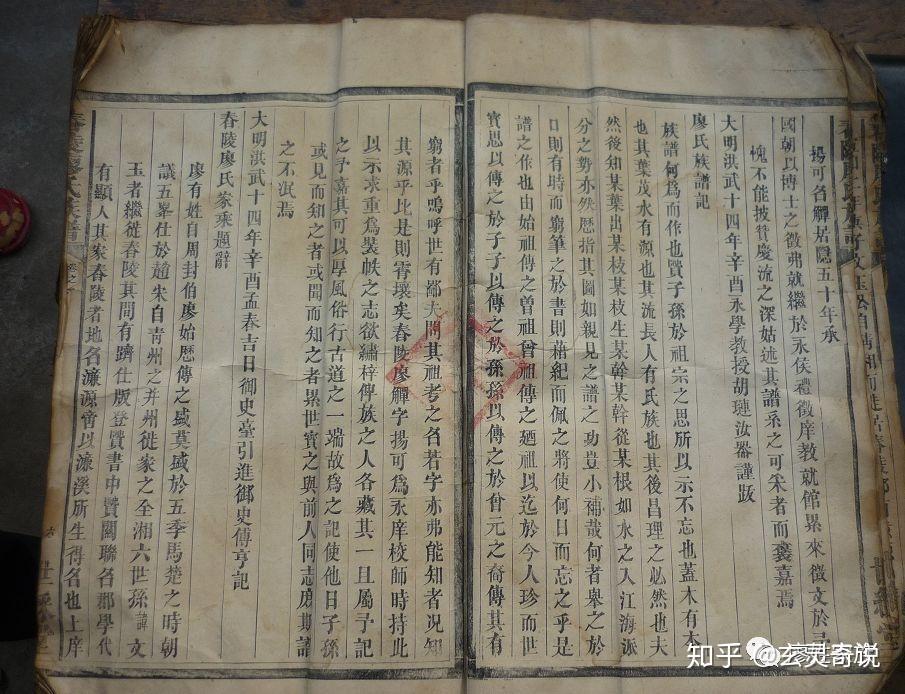 揚可名觶居隱五十年承
國朝以博士之徵弗就繼於永侯禮徵庠教就館累來徵文於
愧不能披贊慶流之深姑述其譜系之可采者而褒嘉焉
大明洪武十四年辛酉永學教授胡璉汝器謹跋
廖氏族譜記
族譜何為而作也賢子孫於祖宗之思所以示不忘也蓋木有本
也其葉茂水有源也其流長人有氏族也其後昌理之必然也夫
然後知某葉出某枝某枝生某幹某幹從某根如水之入江海派
分之勢亦然歷指其圖如親見之譜之功豈小補哉何者舉之於
口則有時而窮筆之於書則藉紀而佩之將使何日而忘之乎是
譜之作也由始祖傳之曾祖曾祖傳之廼祖以迄於今人珍而世
寶思以傳之於子子以傳之於孫孫以傳之於曾元之裔傳其有
窮者乎嗚呼世有鄙夫問其祖考之名若字亦弗能知者况知
其源乎比是則霄壤矣春陵廖觶字揚可為永庠校師時持此
以示求重為裝帙之志欲繡梓俾族之人各藏其一且屬予記
之予嘉其可以厚風俗行古道之一端故為之記使他日子孫
或見而知之者或聞而知之者累世寶之與前人同志庶期譜
之不泯焉
大明洪武十四年辛酉孟春吉日御史臺引進御史傅亨記
春陵廖氏家乘題辭
廖有姓自周封伯廖始歷傳之盛莫盛於五季馬楚之時朝
議五舉仕於趙朱自青州之并州徙家之全湘六世孫諱文
玉者繼從春陵其間有躋仕版登賢書中贊關聯名郡學代
有顯人其家春陵者地名濂源會以濂溪所生得名也上庠
知乎 @玄灵奇说